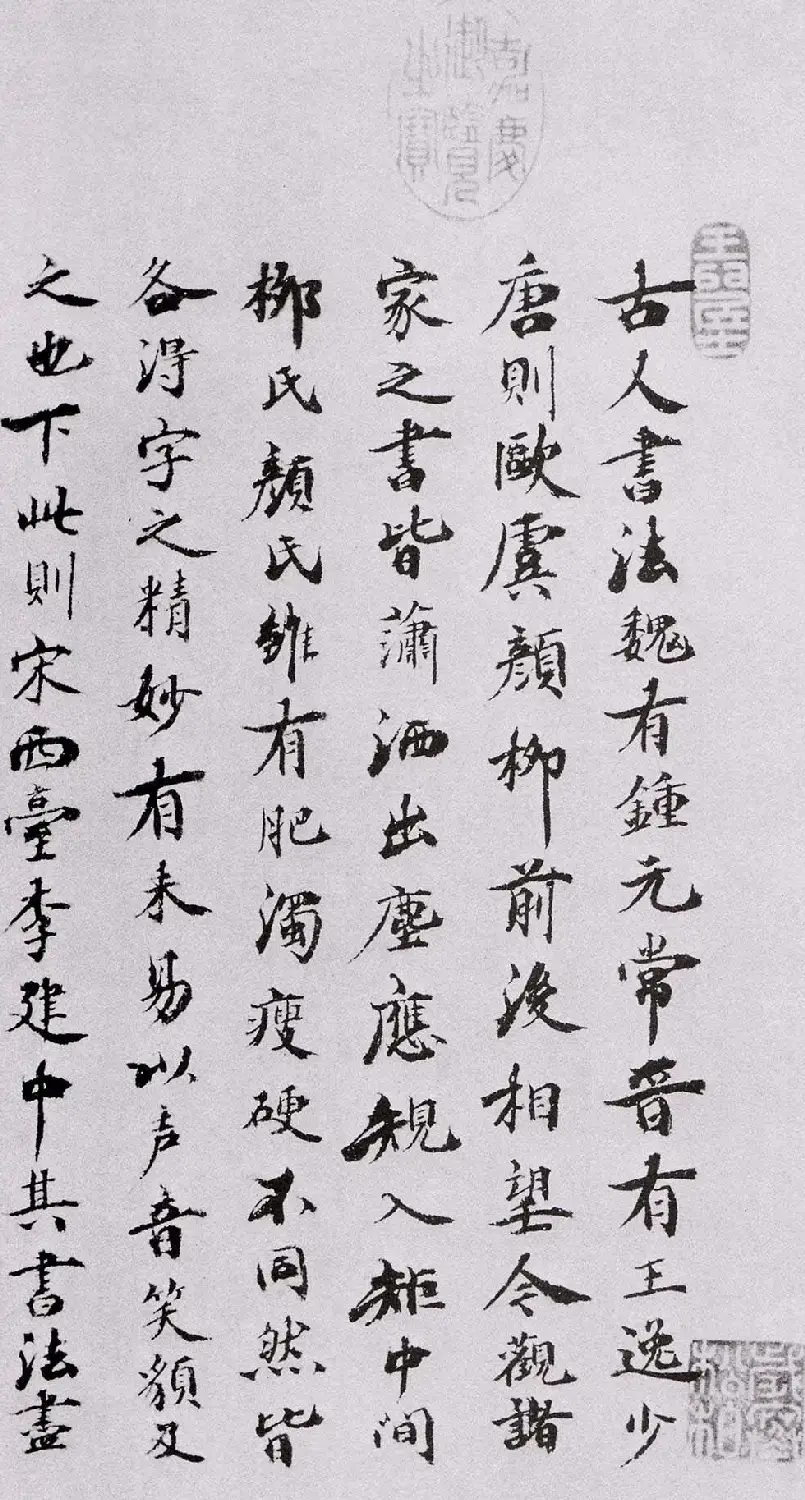 嘉慶御覽之寶
古人書法魏有鍾元常晉有王逸少
唐則歐虞顏柳前後相望今觀諸
家之書皆蕭洒出塵應規入矩中間
柳氏顏氏雖有肥濁瘦硬不同然皆
各得字之精妙有未易以声音笑貌及
之也下此則宋西臺李建中其書法盡